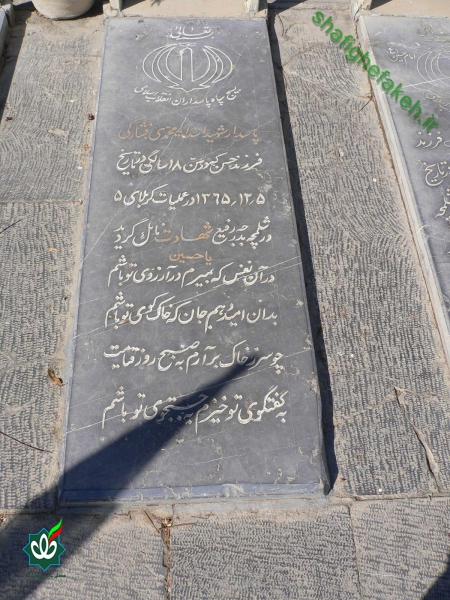 بسمه تعالی
بسیج سپاه پاسداران انقلاب اسلامی
پاسدار شهید
فرزند حسن که در سن ۱۸ سالگی در تاریخ
۱۳۶۵٫۱۲٫۵ در عملیات کربلای ۵
در شلمچه بدرجه رفیع شهادت نائل گردید
یا حسین
در آن نفس که بمیرم در آرزوی تو باشم
بدان امید دهم جان که خاک کوی تو باشم
چو سر ز خاک برآرم به صبح روز قیامت
به گفتگوی تو خیزم به جستجوی تو باشم
shafighefakeh.ir
امام حسین
فرزند
در تاریخ